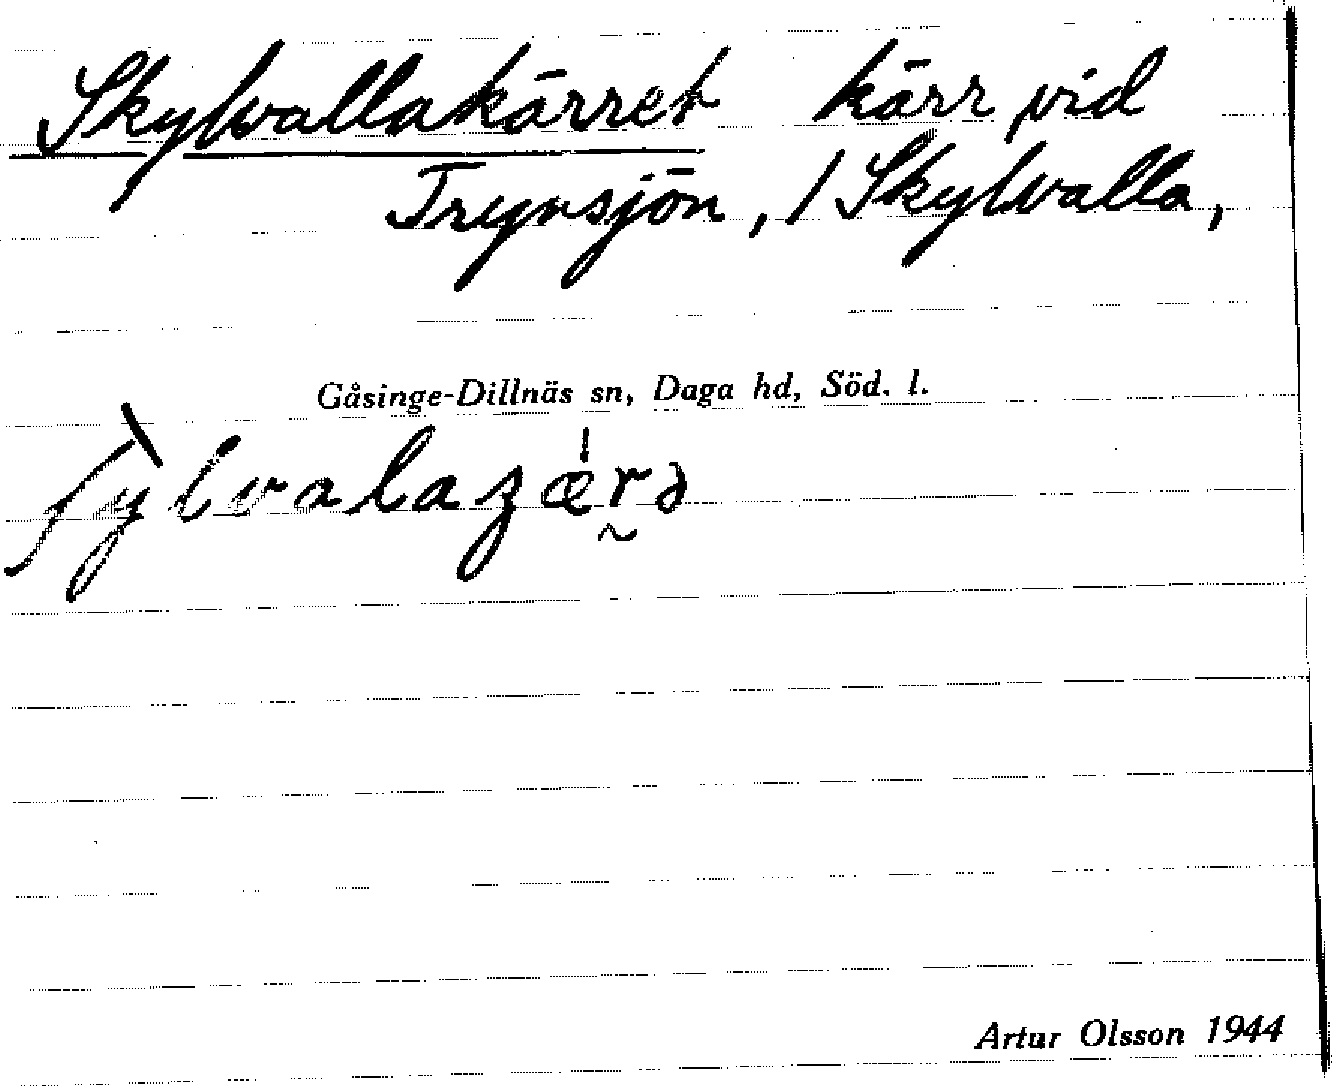 Skylvallakärret kärr vid
Trynsjön, / Skylvalla,
Gåsinge-Dillnäs sn, Daga hd, Söd. l.
Artur Olsson 1944